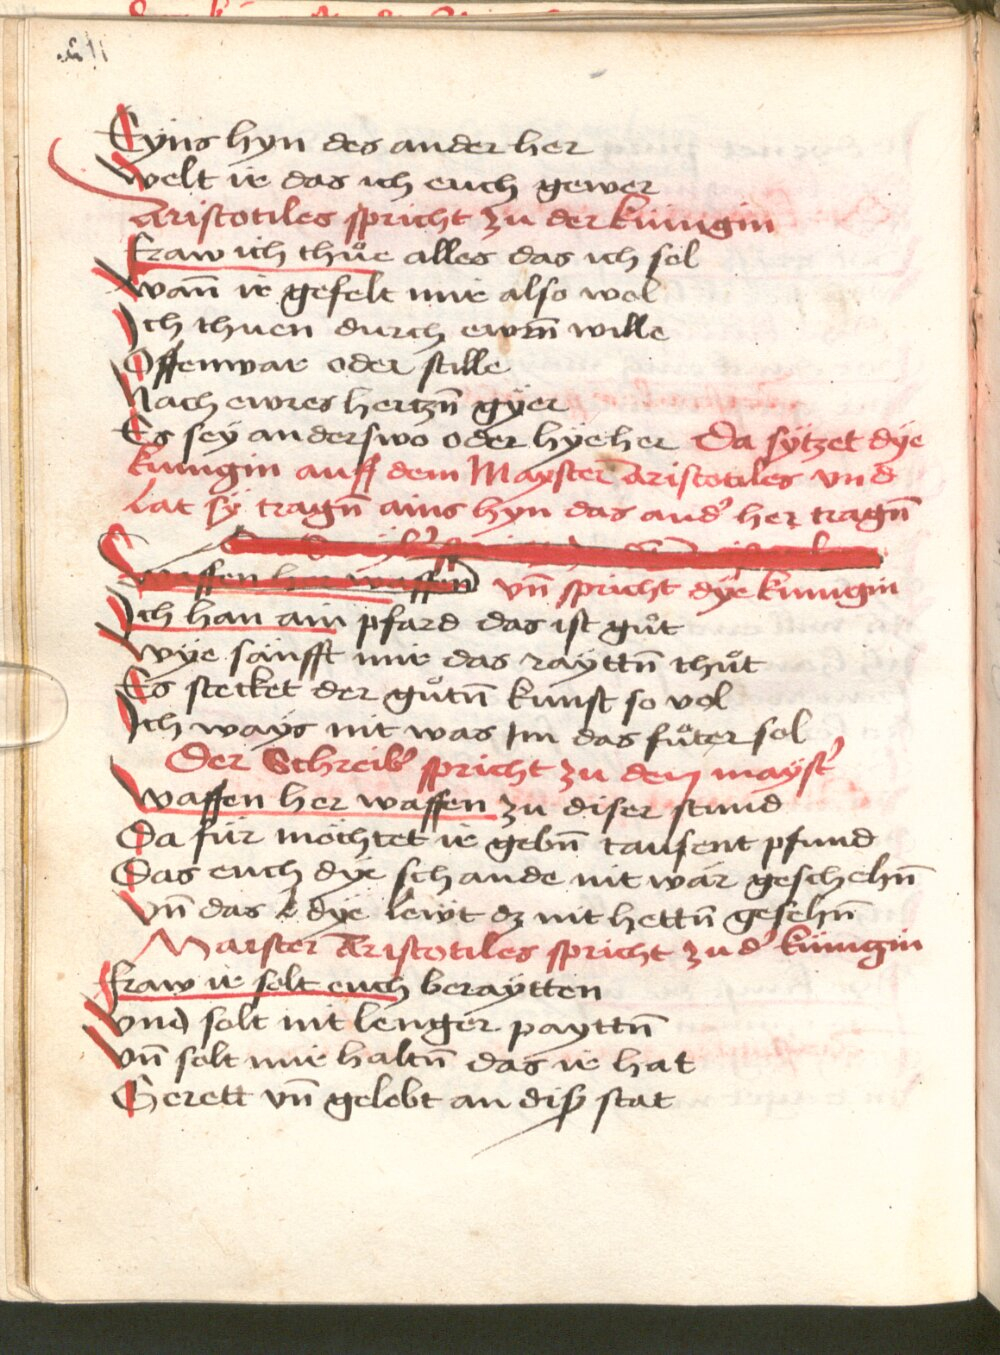 Eyns hyn des ander her
Welt ir das ich euch gewer
Aristotiles spricht zu der künigin
Fraw ich thůe alles das ich sol
Wañ ir gefelt mir also wol
Ich thuen durch ewrñ wille
Offenwar oder stille
Nach ewres hertzñ gyer
Es sey anderswo oder hye her Da sytzet dye
künigin auff dem Mayster Aristotiles vnd
Lat sy tragñ ains hyn das and' her tragñ
Waffen her waffen vñ spricht dye künigin
Ich han ain pfard das ist gůt
Wye sänfft mir das rayttñ thůt
Es stecket der gůtñ kunst so vol
Ich ways nit was Im das fůter sol
Der Schreib' spricht zu dem mayst'
Waffen her waffen zu diser stund
Da für möchtet ir gebñ tausent pfund
Das euch dye schande nit wär geschehñ
Vñ das dye lewt dz nit hettñ gesehñ
Maister Aristotiles spricht zu d' künigin
Fraw ir solt euch beraytten
Vnd solt nit lenger payttñ
Vñ solt mir haltñ das ir hat
Gerett vñ gelobt an diser stat